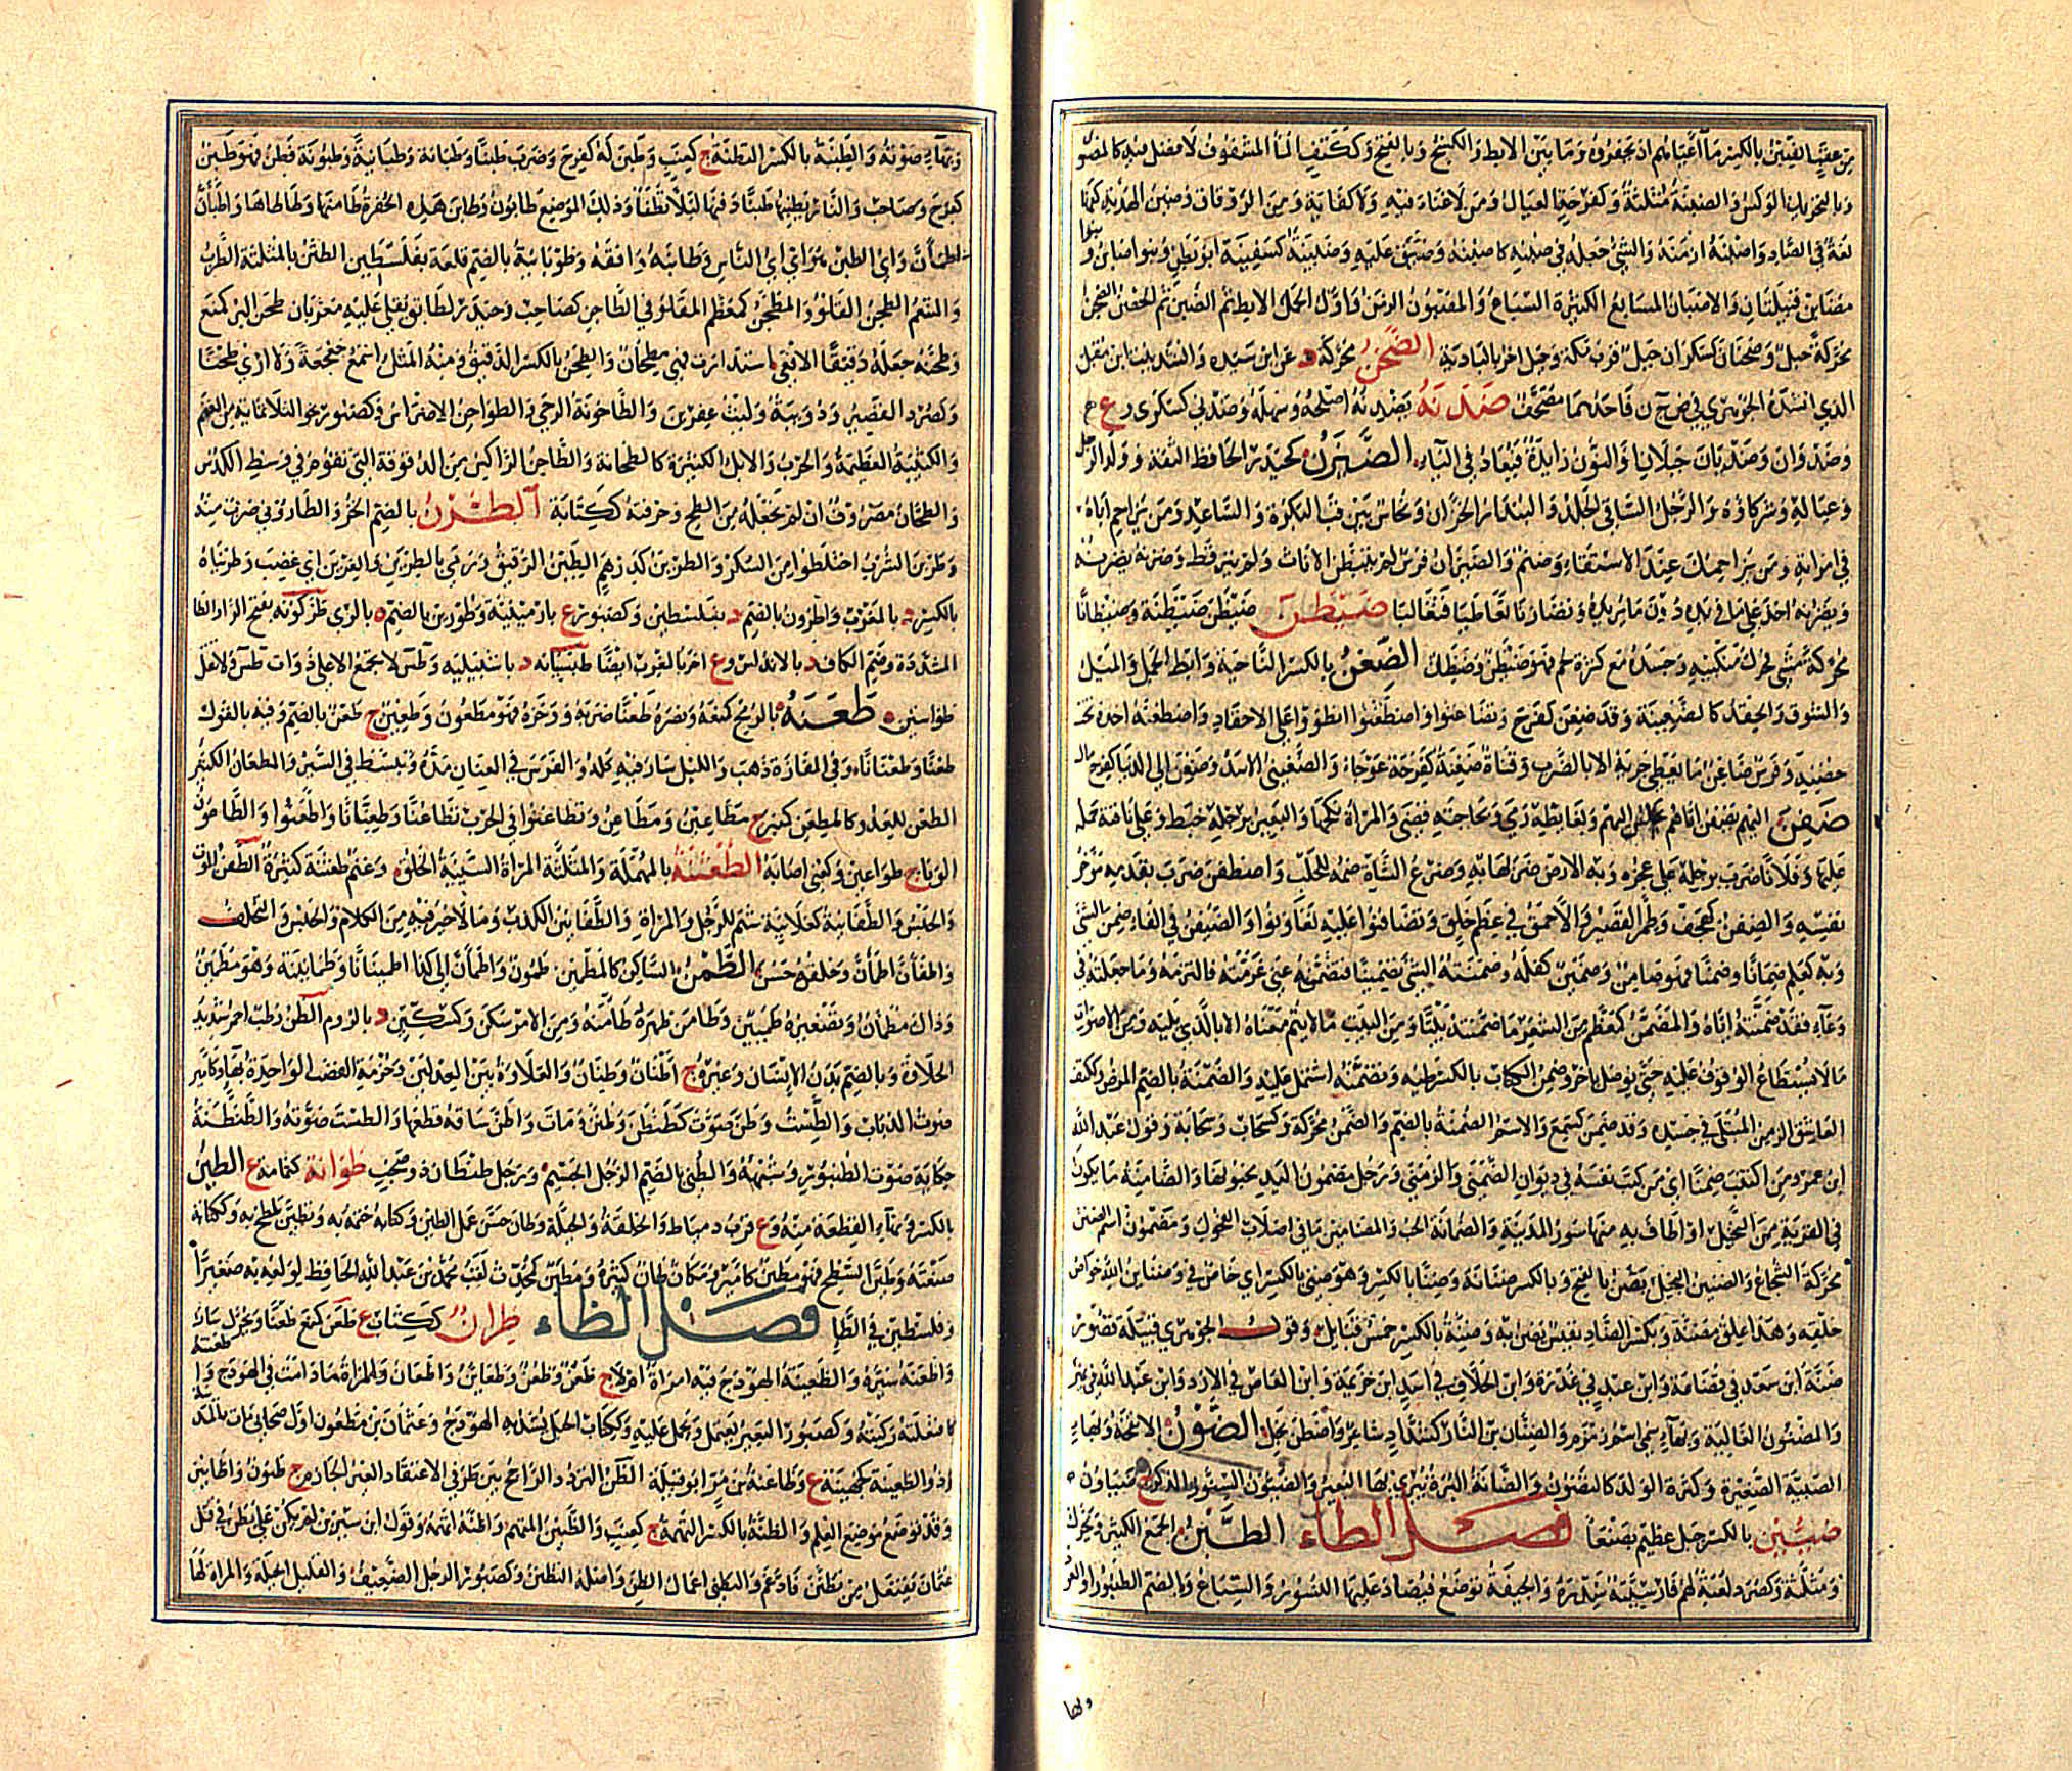 بالكسر ما أعياهم أن يحفروه وما بين الإبط والكشح وبالفتح وككتف الماء المشفوف لا فضل فيه
وبالتحريك الوكس والضبنة مثلثة وكفرحة العيال ومن لا غناء فيه ولا كفاية ومن الرفاق وضبن الهدية كفها
لغة في الصاد وأضبنه أزمنه والشيء جعله في ضبنه كاضطبنه وضيق عليه وضبينة كسفينة أبو بطن وبنو ضابن وبنو
مضابن قبيلتان والأضبان المسابع الكثيرة السباع والمضبون الزمن وأول الحمل الإبط ثم الضبن ثم الحضن الضجن
محركة جبل وضجنان كسكران جبل قرب مكة وجبل آخر بالبادية الضحن محركة د عن ابن سيده وأنشد بيت ابن مقبل
الذي أنشده الجوهري في ض ج ن فأحدهما مصحف ضدنه يضدنه أصلحه وسهله وضدنى كسكرى ع
وضدوان وضديان جبلان والنون زائدة فيعاد في الياء الضيزن كحيدر الحافظ الثقة وولد الرجل
وعياله وشركاؤه والرجل الساقي الجلد والبندار الخزان ونحاس بين قب البكرة والساعد ومن يزاحم أباه
في امرأته ومن يزاحمك عند الاستقاء وصنم والضيزنان فرس لم يتبطن الإناث ولم ينز قط وضزنه يضزنه
ويضزنه أخذ على ما في يده دون ما يريده وتضازنا تعاطيا فتغالبا ضيطن ضيطنة وضيطانا
محركة مشى فحرك منكبيه وجسده مع كثرة لحم فهو ضيطن وضيطان الضغن بالكسر الناحية وإبط الجمل والميل
والشوق والحقد كالضغينة وقد ضغن كفرح وتضاغنوا واضطغنوا انطووا على الأحقاد واضطغنه أخذه تحت
حضنه وفرس ضاغن ما يعطي جريه إلا بالضرب وقناة ضغنة كفرحة عوجاء والضغيني الأسد وضغن إلى الدنيا كفرح مال
ضفن إليهم يضفن أتاهم يجلس إليهم وبغائطه رمى وبحاجته قضى والمرأة نكحها والبعير برجله خبط وعلى ناقته حمله
عليها وفلانا ضرب برجله على عجزه وبه الأرض ضربها به وضرع الشاة ضمه للحلب واضطفن ضرب بقدمه مؤخر
نفسه والضفن كهجف وطمر القصير والأحمق في عظم خلق وتضافنوا عليه تعاونوا والضيفن في الفاء ضمن الشيء
وبه كعلم ضمانا وضمنا فهو ضامن وضمين كفله وضمنته الشيء تضمينا فتضمنه عني غرمته فالتزمه وما جعلته في
وعاء فقد ضمنته إياه والمضمن كمعظم من الشعر ما ضمنته بيتا ومن البيت ما لا يتم معناه إلا بالذي يليه ومن الأصوات
ما لا يستطاع الوقوف عليه حتى يوصل بآخر وضمن الكتاب بالكسر طيه وتضمنه اشتمل عليه والضمنة بالضم المرض وككتف
العاشق الزمن المبتلى في جسده وقد ضمن كسمع والاسم الضمنة بالضم والضمن محركة وكسحاب وسحابة وقول عبد الله
ابن عمرو من اكتتب ضمنا أي من كتب نفسه في ديوان الضمنى والزمنى ورجل مضمون اليد مخبونها والضامنة ما يكون
في القرية من النخيل أو أطاف به منها سور المدينة والضمانة الحب والمضامين ما في أصلاب الفحول ومضمون اسم الضنن
محركة الشجاع والضنين البخيل يضن بالفتح وبالكسر ضنانة وضنا بالكسر وهو ضني بالكسر أي خاص بي وضنائن الله خواص
خلقه وهذا علق مضنة وبكسر الضاد نفيس يضن به وضنة بالكسر خمس قبائل وقول الجوهري قبيلة قصور
ضنة ابن سعد في قضاعة وابن عبد في عذرة وابن الحلاف في أسد ابن خزيمة وابن العاص في الأزد وابن عبد الله في نمير
والمضنون الغالية وبهاء سمي اسم زمزم والضنان بن النار كشداد شاعر واضطن بخل الضون الإنفحة وبهاء
الصبية الصغيرة وكثرة الولد كالتضون والضانة البرة يبرى بها البعير والضيون السنور الذكر ج ضياون
ضين بالكسر جبل عظيم بصنعاء فصل الطاء الطبن الجمع الكثير ويحرك
ومثلثة وكصرد لعبة لهم فارسيته سدره والجيفة توضع فيصاد عليها النسور والسباع وبالضم الطنبور أو العود
وبها
وبهاء صوته والطبنة بالكسر الفطنة ج كعنب وطبن له كفرح وضرب طبنا وطبانة وطبانية وطبونة فطن فهو طبن
كفرح وصاحب والنار يطبنها طبنا دفنها لئلا تطفأ وذلك الموضع طابون وطابن هذه الحفرة طأمنها وطأطأها واطبأن
اطمأن وأي الطبن هو أي أي الناس وطابنه وافقه وطوبانية بالضم قلعة بفلسطين الطثن بالمثلثة الطرب
والتنعم الطجن القلو والمطجن كمعظم المقلو في الطاجن كصاحب وحيدر لطابق يقلى عليه معربان طحن البر كمنع
وطحنه جعله دقيقا الأفعى استدارت فهي مطحان والطحن بالكسر الدقيق ومنه المثل أسمع جعجعة ولا أرى طحنا
وكصرد القصير ودويبة وليث عفرين والطاحونة الرحى والطواحن الأضراس وكصبور نحو الثلاثمائة من الغنم
والكتيبة العظيمة والحرب والإبل الكثيرة كالطحانة والطاحن الراكس من الدقوقة التي تقوم في وسط الكدس
والطحان مصروف إن لم تجعله من الطح وحرفته ككتابة الطرن بالضم الخز والطاروني ضرب منه
وطرين الشرب اختلطوا من السكر والطرين كدرهم الطين الرقيق ورمي بالطرين والغرين أي غضب وطرنياه
بالكسر د بالمغرب وأطرون بالضم د بفلسطين وكصبور ع بأرمينية وطورين بالضم ة بالري طركونه بفتح الراء والطاء
المشددة وضم الكاف د بالأندلس وع آخر بالمغرب أيضا طسانه د بإشبيلية وطس لا يجمع إلا على ذوات طس ولا تقل
طواسين طعنه بالرمح كمنعه ونصره طعنا ضربه ووخزه فهو مطعون وطعين ج طعن بالضم وفيه بالقول
طعنا وطعنانا وفي المفازة ذهب والليل سار فيه كله والفرس في العنان مده وتبسط في السير والمطعان الكثير
الطعن للعدو كالمطعن كمنبر ج مطاعين ومطاعن وتطاعنوا في الحرب تطاعنا وطعنانا واطعنوا والطاعون
الوباء ج طواعين وكعني أصابه الطغثنة بالمهملة والمثلثة المرأة السيئة الخلق وغنم طعثنة كثيرة الطفن الموت
والحبس والطفانية كعلانية شتم للرجل والمرأة والطفانين الكذب وما لا خير فيه من الكلام والحبس والتخلف
واطفأن اطمأن وخلقه حسن الطمن الساكن كالمطمئن طمون واطمأن إلى كذا اطمئنانا وطمأنينة وهو مطمئن
وذاك مطمأن وتصغيره طميئن وطأمن ظهره طأمنه ومن الأمر سكن وكسكين د بالروم الطن رطب أحمر شديد
الحلاوة وبالضم بدن الإنسان وغيره ج أطنان وطنان والعلاوة بين العدلين وحزمة القصب الواحدة بهاء وكأمير
صوت الذباب والطست وطن صوت كطنطن وطنن ومات وأطن ساقه قطعها والطست صوته والطنطنة
حكاية صوت الطنبور وشبهه والطني بالضم الرجل الجسيم ورجل طنطان ذو صخب طوانة كثمامة ع الطين
بالكسر وبهاء القطعة منه وع قرب دمياط والخلقة والجبلة وطان حسن عمل الطين وكتابه ختمه به وتطين تلطخ به وككتابة
صنعته وطين السطح فهو مطين كأمير ومكان طان كثيره ومطين كمحدث لقب محمد بن عبد الله الحافظ لولعه به صغيرا
وفلسطين في الطاء فصل الظاء ظران ككتاب ع ظعن كمنع ظعنا ويحرك سار
وأظعنه سيره والظعينة الهودج فيه امرأة أم لا ج ظعن وظعن وظعائن وأظعان والمرأة ما دامت في الهودج
كافتعلته ركبته وكصبور البعير يعتمل ويحمل عليه وككتاب الحبل يشد به الهودج وعثمان بن مظعون أول صحابي مات بالمدينة
وذو الظعينة كجهينة ع وظاعنة بن مر أبو قبيلة الظن التردد الراجح بين طرفي الاعتقاد الغير الجازم ج ظنون وأظانين
وقد توضع موضع العلم والظنة بالكسر التهمة ج كعنب والظنين المتهم وأظنه اتهمه وقول ابن سيرين لم يكن علي يظن في قتل
عثمان يفتعل من تظنن فأدغم والتظني إعمال الظن وأصله التظنن وكصبور الرجل الضعيف والقليل الحيلة والمرأة لها